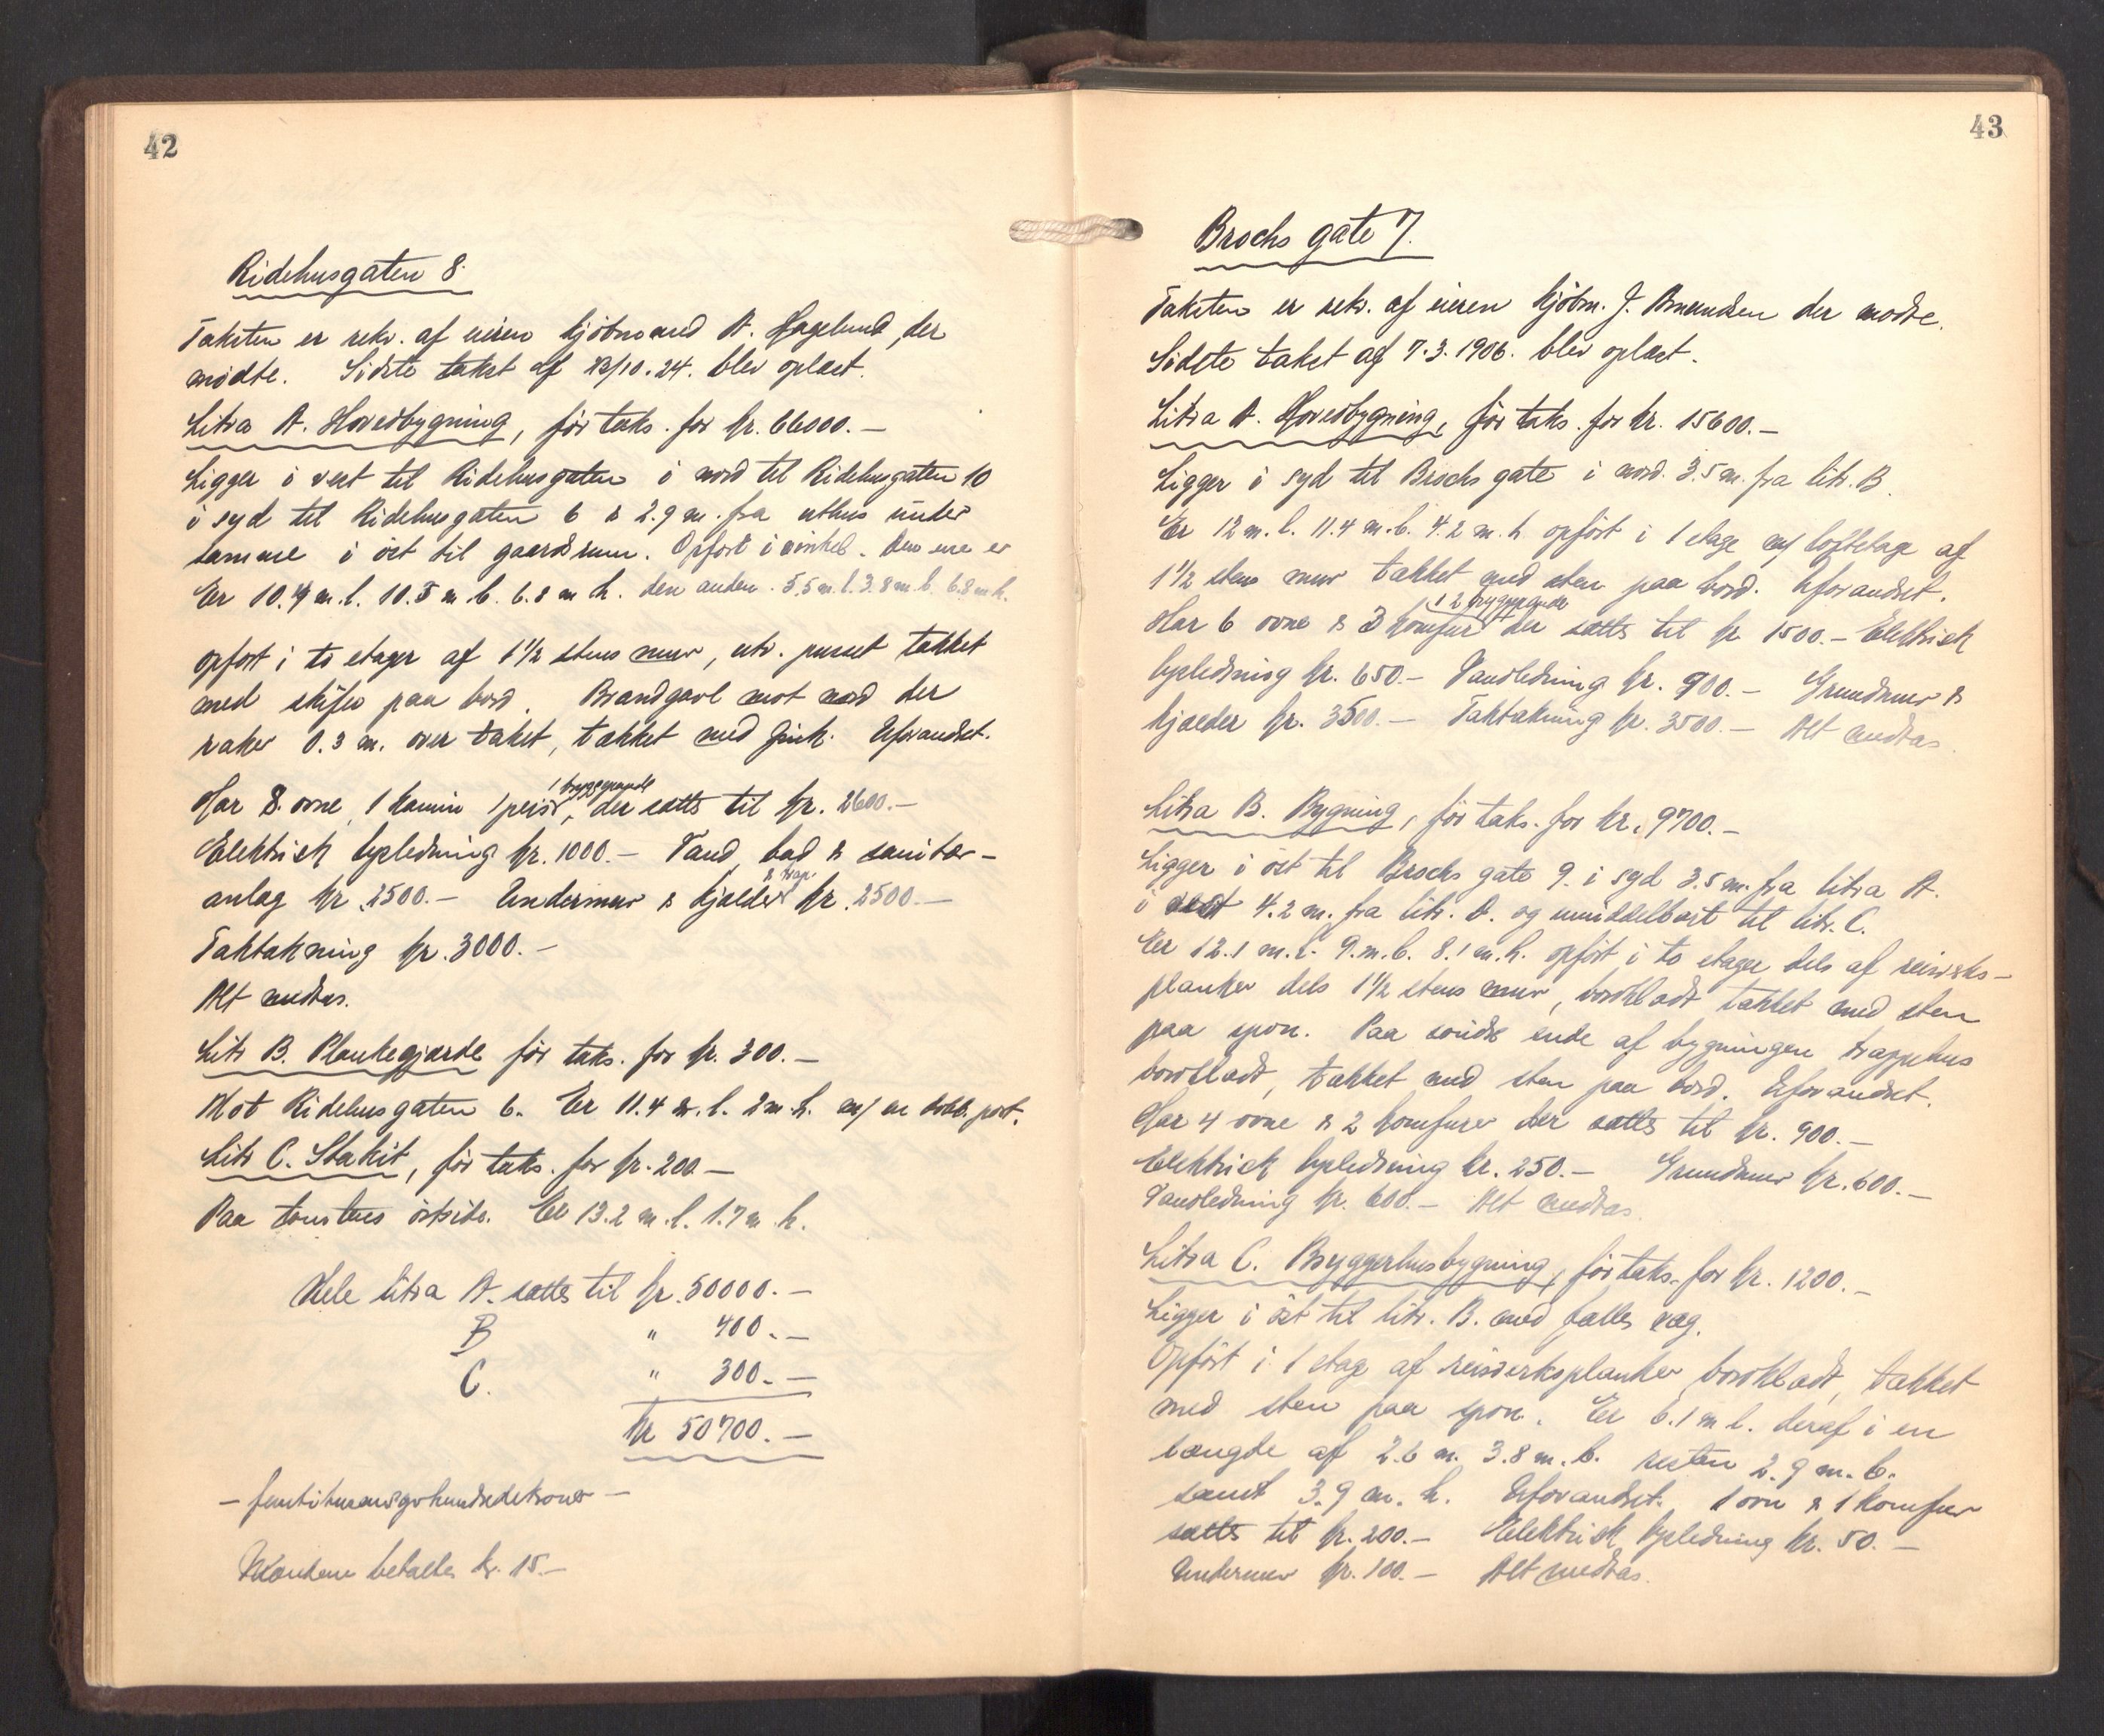 42
Ridehusgaten 8.
Taksten er rekv. af eieren kjöbmand A. Hagelund, der
mödte. Sidste takst af /10.24. blev oplæst.
Litra A. Hovedbygning, før taks. for kr. 66000.—
Ligger i vest til Ridehusgaten i nord til Ridehusgaten 10
i syd til Ridehusgaten 6 & 2.9 m. fra uthus under
samme i öst til gaardsrum. Opfört i vinkel. Den ene er
Er 10.4 m. l. 10.5 m b. 6.8 m h. den anden 5.5 m. l. 3.8 m. b. 6.8 m h.
opfört i to etager af 1½ stens mur, utv. pusset tækket
med skifer paa bord. Brandgavl mot nord der
raker 0.3 m. over taket, tækket med zink. Uforandret.
Har 8 ovne, 1 kamin 1 peis, 1 bryggepande der sættes til kr. 2600.—
Elektrisk lysledning kr. 1000.— Vand, bad & sanitær-
anlæg kr. 2500.— Undermur & kjælder & trap. kr. 2500.—
Taktækning kr. 3000.—
Alt medtas.
Litr B. Plankegjærde før taks. for kr. 300.—
Mot Ridehusgaten 6. Er 11.4 m. l. 2 m. h. m/ en dobb. port.
Litr C. Stakit, før taks. for kr. 200.—
Paa tomtens östside. Er 13.2 m. l. 1.7 m. h.
Hele litra A. sættes til kr. 50000.—
B " 400.—
C. " 300.—
kr 50700.—
— femtitusensyvhundredekroner —
betaltes kr. 15.—
43
Brochs gate 7.
Taksten er rekv. af eieren kjöbm. J. der mödte.
Sidste takst af 7.3.1906. blev oplæst.
Litra A. Hovedbygning, før taks. for kr. 15600.—
Ligger i syd til Brochs gate i nord. 3.5 m. fra litr. B.
Er 12 m. l. 11.4 m. b. 4.2 m. h opfört i 1 etage m/ loftetage af
1½ stens mur tækket med sten paa bord. Uforandret.
Har 6 ovne & 3 komfur + 2 bryggepander der sættes til kr 1500.— Elektrisk
lysledning kr. 650.— Vandledning kr. 900.— Grundmur &
kjælder kr. 3500.— Taktækning kr. 3500.— Alt medtas.
Litra B. Bygning, før taks. for kr. 9700.—
Ligger i öst til Brochs gate 9. i syd 3.5 m. fra litra A.
i vest 4.2 m. fra litr. D. og umiddelbart til litr. C.
Er 12.1 m. l. 9. m. b. 8.1 m. h. opfört i to etager dels af reisverks-
planker dels 1½ stens mur, bordklædt tækket med sten
paa spon. Paa söndre ende af bygningen trappehus
bordklædt, tækket med sten paa bord. Uforandret.
Har 4 ovne & 2 komfurer der sættes til kr. 900.—
Elektrisk lysledning kr. 250.— Grundmur kr. 600.—
Vandledning kr. 600.— Alt medtas.
Litra C. Bryggerhusbygning, før taks. for kr. 1200.—
Ligger i öst til litr. B. med fælles væg.
Opfört i 1 etag af reisverksplanker bordklædt, tækket
med sten paa spon. Er 6.1 m l. deraf i en
længde af 2.6 m. 3.8 m. b. resten 2.9 m. b.
samt 3.9 m. h. Uforandret. 1 ovn & 1 komfur
sættes til kr. 200.— Elektrisk lysledning kr. 50.—
Undermur kr. 100.— Alt medtas.